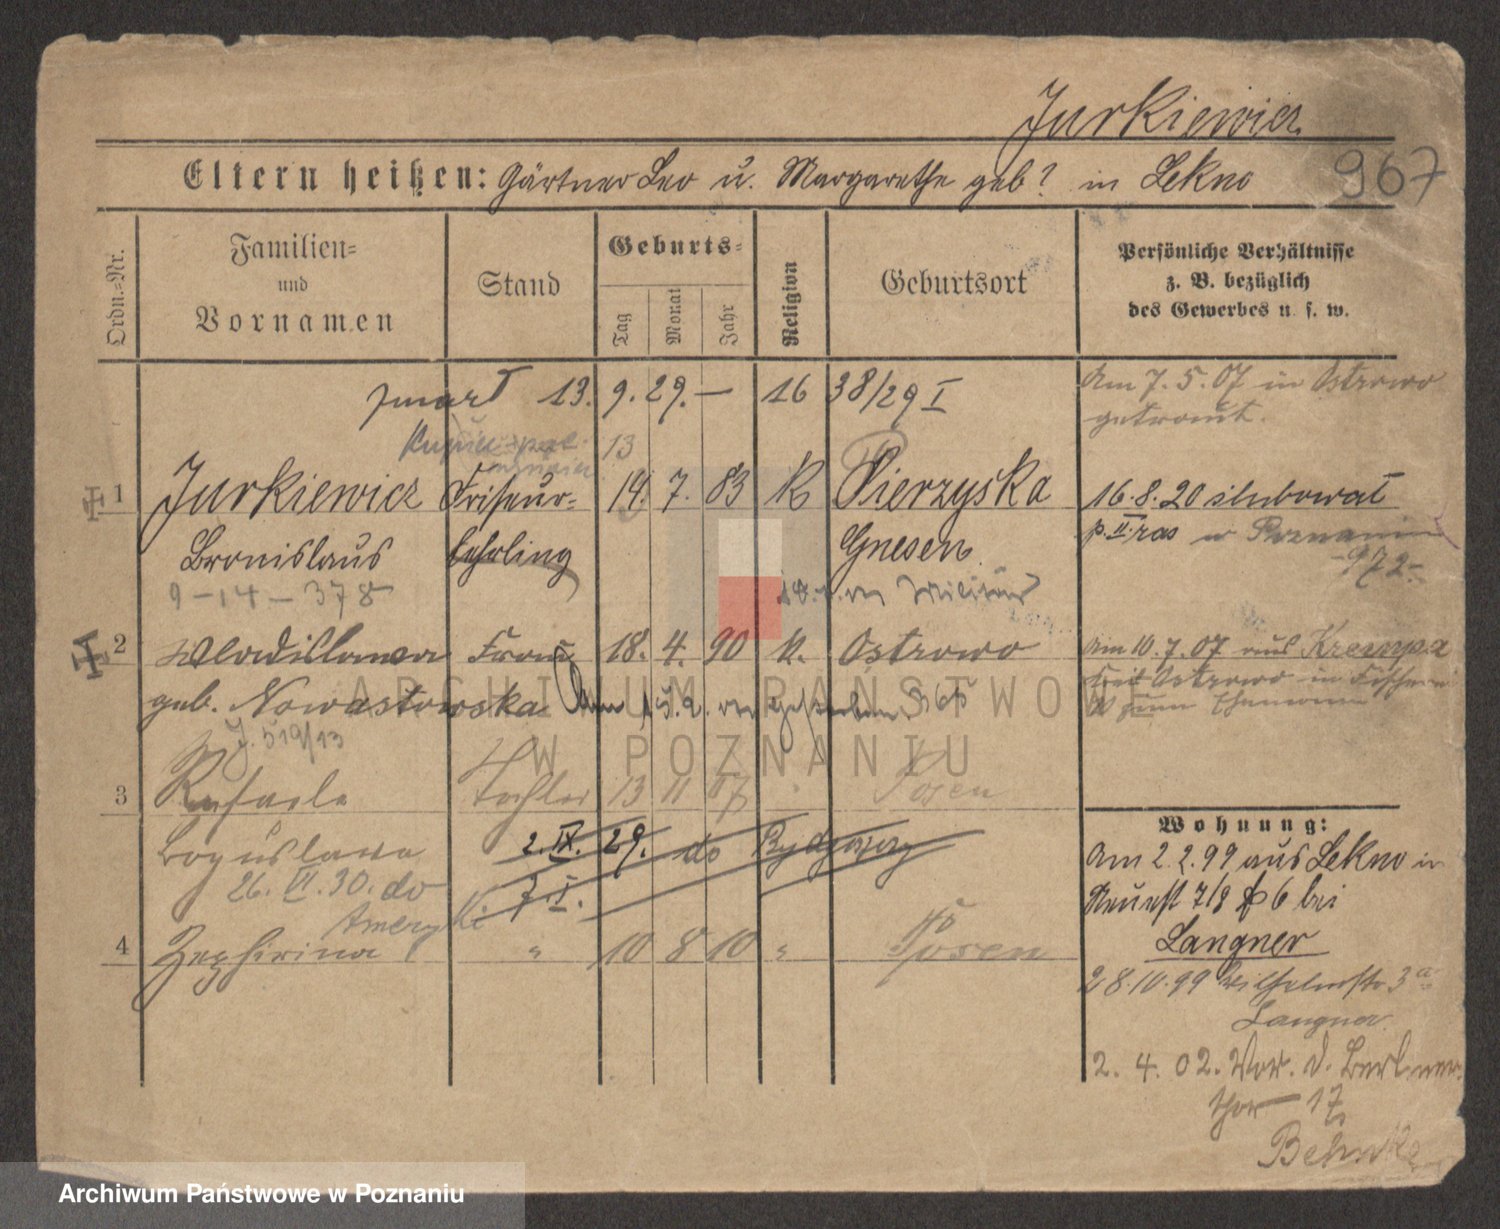 Jurkiewicz
967
Eltern heißen: Gärtner Leo u. Margarethe geb? in Lekno
Ordn.-Nr.
Familien-
und
Vornamen
Stand
Geburts-
Tag
Monat
Jahr
Religion
Geburtsort
Persönliche Verhältnisse
z. B. bezüglich
des Gewerbes u. s. w.
zmarł 13. 9. 29. — 16 38/29 I
Am 7. 5. 07 in Ostrowo
getraut.
13
1 Jurkiewicz Friseur- 14. 7. 83 K Pierzyska
Bronislaus lehrling Gnesen
16. 8. 20 slubował
p. II. ras w Poznaniu
972
9-14-378
Militär
2 Wladislawa Frau 18. 4. 90 k. Ostrowo
geb. Nowastowska
Am 10. 7. 07 aus Krempa
Ostrowo in
zum Ehemann
J. 519/13
3 Rafaela Tochter 13 11 07 " Posen
Boguslawa
2. IX. 29. do Bydgoszczy
7. I.
26. VI. 30. do
Ameryki
4 Zephirina " 10 8 10 " Posen
Wohnung:
Am 2. 2. 99 aus Lekno in
Neuest 7/8 6 bei
Langner
28. 10. 99 Wilhelmstr 3a
Langner
2. 4. 02. Vor. d. Berliner
thor 17
Behnke
ARCHIWUM PAŃSTWOWE
W POZNANIU
Archiwum Państwowe w Poznaniu